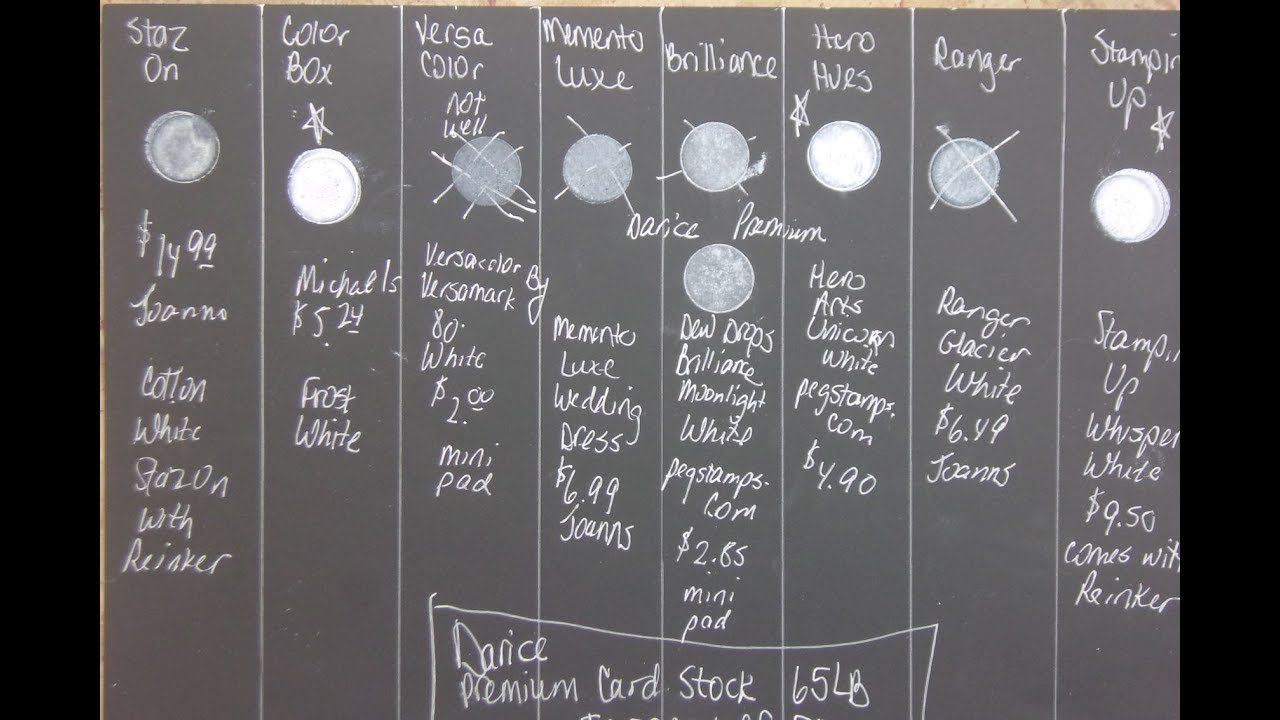 Staz
On
$14.99
Joanns
Cotton
White
StazOn
With
Reinker
Color
Box
Michaels
$5.24
Frost
White
Versa
Color
not
well
Versacolor By
Versamark
80.
White
$2.00
mini
pad
Memento
Luxe
Memento
Luxe
Wedding
Dress
$6.99
Joanns
Brilliance
Darice Premium
Dew Drops
Brilliance
Moonlight
White
pegstamps.
com
$2.85
mini
pad
Hero
Hues
Hero
Arts
Unicorn
White
pegstamps.
com
$4.90
Ranger
Ranger
Glacier
White
$6.49
Joanns
Stampin
Up
Stampin
Up
Whisper
White
$9.50
comes with
Reinker
Darice
Premium Card Stock 65LB